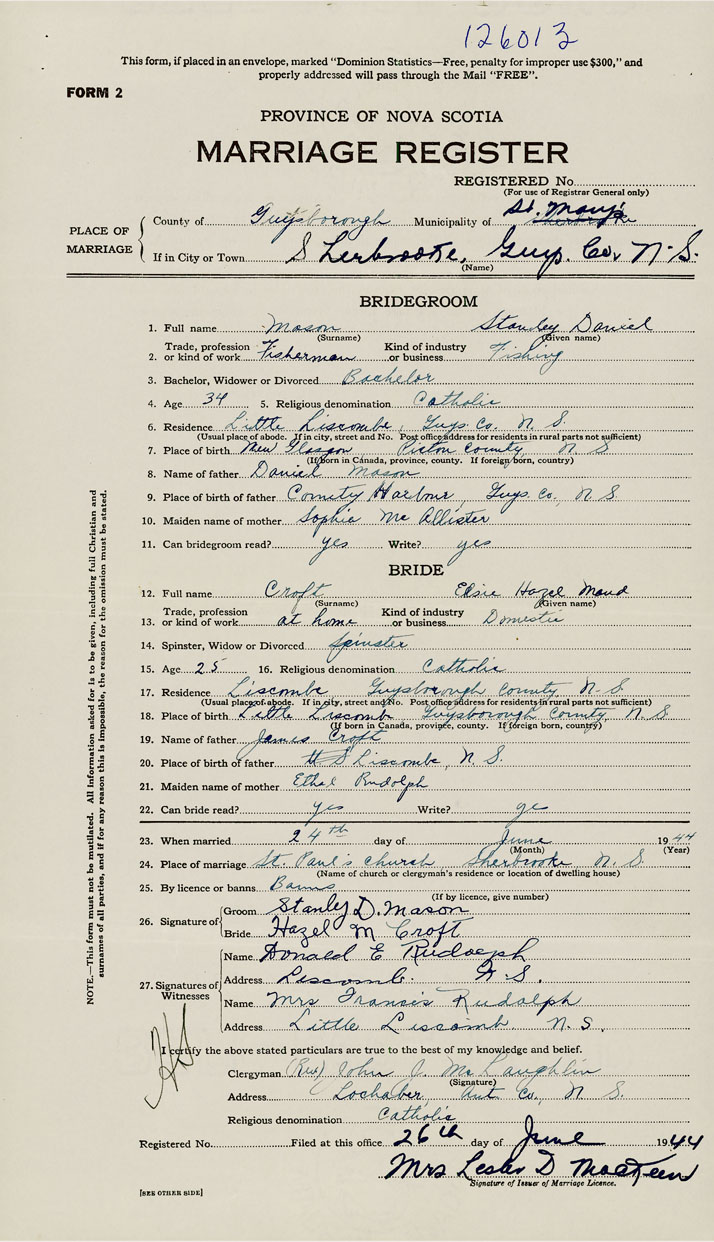 126013
This form, if placed in an envelope, marked "Dominion Statistics—Free, penalty for improper use $300," and
properly addressed will pass through the Mail "FREE".
FORM 2
PROVINCE OF NOVA SCOTIA
MARRIAGE REGISTER
REGISTERED No.
(For use of Registrar General only)
PLACE OF MARRIAGE
County of Guysborough Municipality of St. Mary's
If in City or Town Sherbrooke, Guys. Co. N.S.
(Name)
BRIDEGROOM
1. Full name Mason Stanley Daniel
(Surname) (Given name)
2. Trade, profession or kind of work Fisherman Kind of industry or business Fishing
3. Bachelor, Widower or Divorced Bachelor
4. Age 34 5. Religious denomination Catholic
6. Residence Little Liscombe, Guys. Co. N. S.
(Usual place of abode. If in city, street and No. Post office address for residents in rural parts not sufficient)
7. Place of birth New Glasgow Pictou County, N S
(If born in Canada, province, county. If foreign born, country)
8. Name of father Daniel Mason
9. Place of birth of father County Harbour, Guys. Co, N S.
10. Maiden name of mother Sophia Mc Allister
11. Can bridegroom read? yes Write? yes
BRIDE
12. Full name Croft Elsie Hazel Maud
(Surname) (Given name)
13. Trade, profession or kind of work at home Kind of industry or business Domestic
14. Spinster, Widow or Divorced Spinster
15. Age 25 16. Religious denomination Catholic
17. Residence Liscombe, Guysborough County N. S
(Usual place of abode. If in city, street and No. Post office address for residents in rural parts not sufficient)
18. Place of birth Little Liscomb Guysborough County, N. S
(If born in Canada, province, county. If foreign born, country)
19. Name of father James Croft
20. Place of birth of father Liscombe, N. S.
21. Maiden name of mother Ethel Rudolph
22. Can bride read? yes Write? ye
23. When married 24th day of June 1944
(Month) (Year)
24. Place of marriage St. Paul's church Sherbrooke N. S.
(Name of church or clergyman's residence or location of dwelling house)
25. By licence or banns Banns
(If by licence, give number)
26. Signature of Groom Stanley D. Mason
Bride Hazel M Croft
27. Signatures of Witnesses
Name Donald E Rudolph
Address Liscomb. N.S.
Name Mrs Francis Rudolph
Address Little Liscomb N. S.
I certify the above stated particulars are true to the best of my knowledge and belief.
Clergyman (Rev) John J. McLaughlin
(Signature)
Address Lochaber, Ant. Co., N. S.
Religious denomination Catholic
Registered No. Filed at this office 26th day of June 1944
Mrs Lesler D MacKeen
Signature of Issuer of Marriage Licence.
[SEE OTHER SIDE]
NOTE.—This form must not be mutilated. All information asked for is to be given, including full Christian and
surnames of all parties, and if for any reason this is impossible, the reason for the omission must be stated.